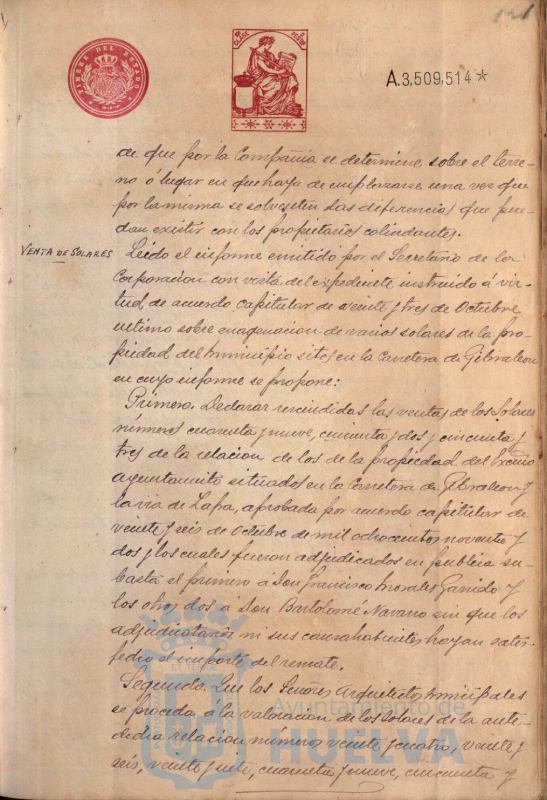 121
TIMBRE DEL ESTADO
A.3,509,514*
de que por la Compañia se determine sobre el terre-
no ó lugar en que haya de emplazarse una vez que
por la misma se solventen las diferencias que pue-
dan existir con los propietarios colindantes.
VENTA DE SOLARES
Leido el informe emitido por el Secretario de la
Corporacion con vista del expediente instruido á vir-
tud, de acuerdo capitular de veinte y tres de Octubre
ultimo sobre enagenacion de varios solares de la pro-
piedad del Municipio sitos en la Carretera de Gibraleon
en cuyo informe se propone:
Primero. Declarar rescindidas las ventas de los Solares
números cuarenta y nueve, cincuenta y dos y cincuenta y
tres de la relacion de los de la propiedad del Excmo
Ayuntamiento situados en la Carretera de Gibraleon y
la via de Zafra, aprobada por acuerdo capitular de
veinte y seis de Octubre de mil ochocientos noventa y
dos y los cuales fueron adjudicados en publica su-
basta el primero á Don Francisco Morales Garrido y
los otros dos á Don Bartolomé Navarro sin que los
adjudicatarios ni sus causahabientes hayan satis-
fecho el importe del remate.
Segundo. Que los Señores Arquitectos Municipales
se proceda á la valoracion de los solares de la ante-
dicha relacion números veinte y cuatro, veinte y
seis, veinte y siete, cuarenta y nueve, cincuenta y
Ayuntamiento de
HUELVA